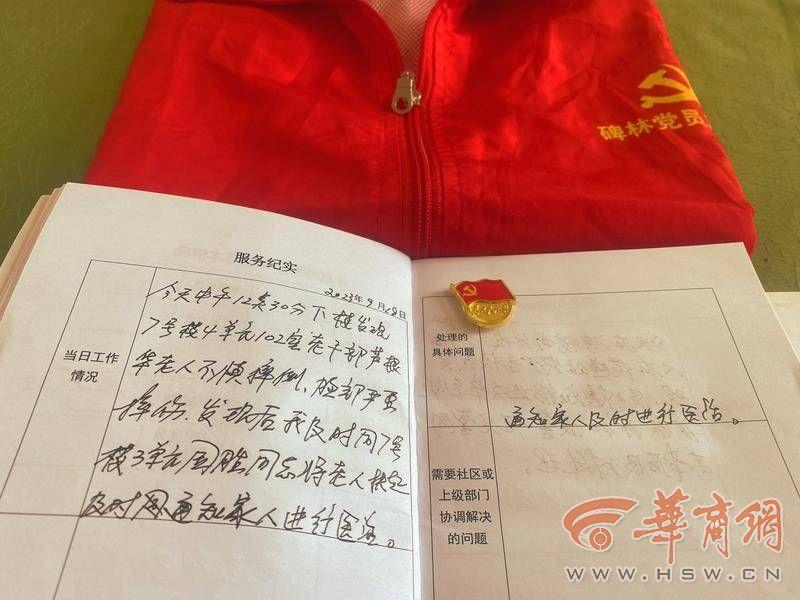 碑林党员
服务纪实
2023年9月18日
当日工作
情况
今天中午12点30分下楼发现
7号楼4单元102室老干部芦根
华老人不慎摔倒,脸部严重
摔伤、发现后我及时同7号
楼3单元周胜同志将老人扶起
及时通知家人进行医治。
处理的
具体问题
通知家人及时进行医治。
需要社区或
上级部门
协调解决
的问题
華商網
WWW.HSW.CN